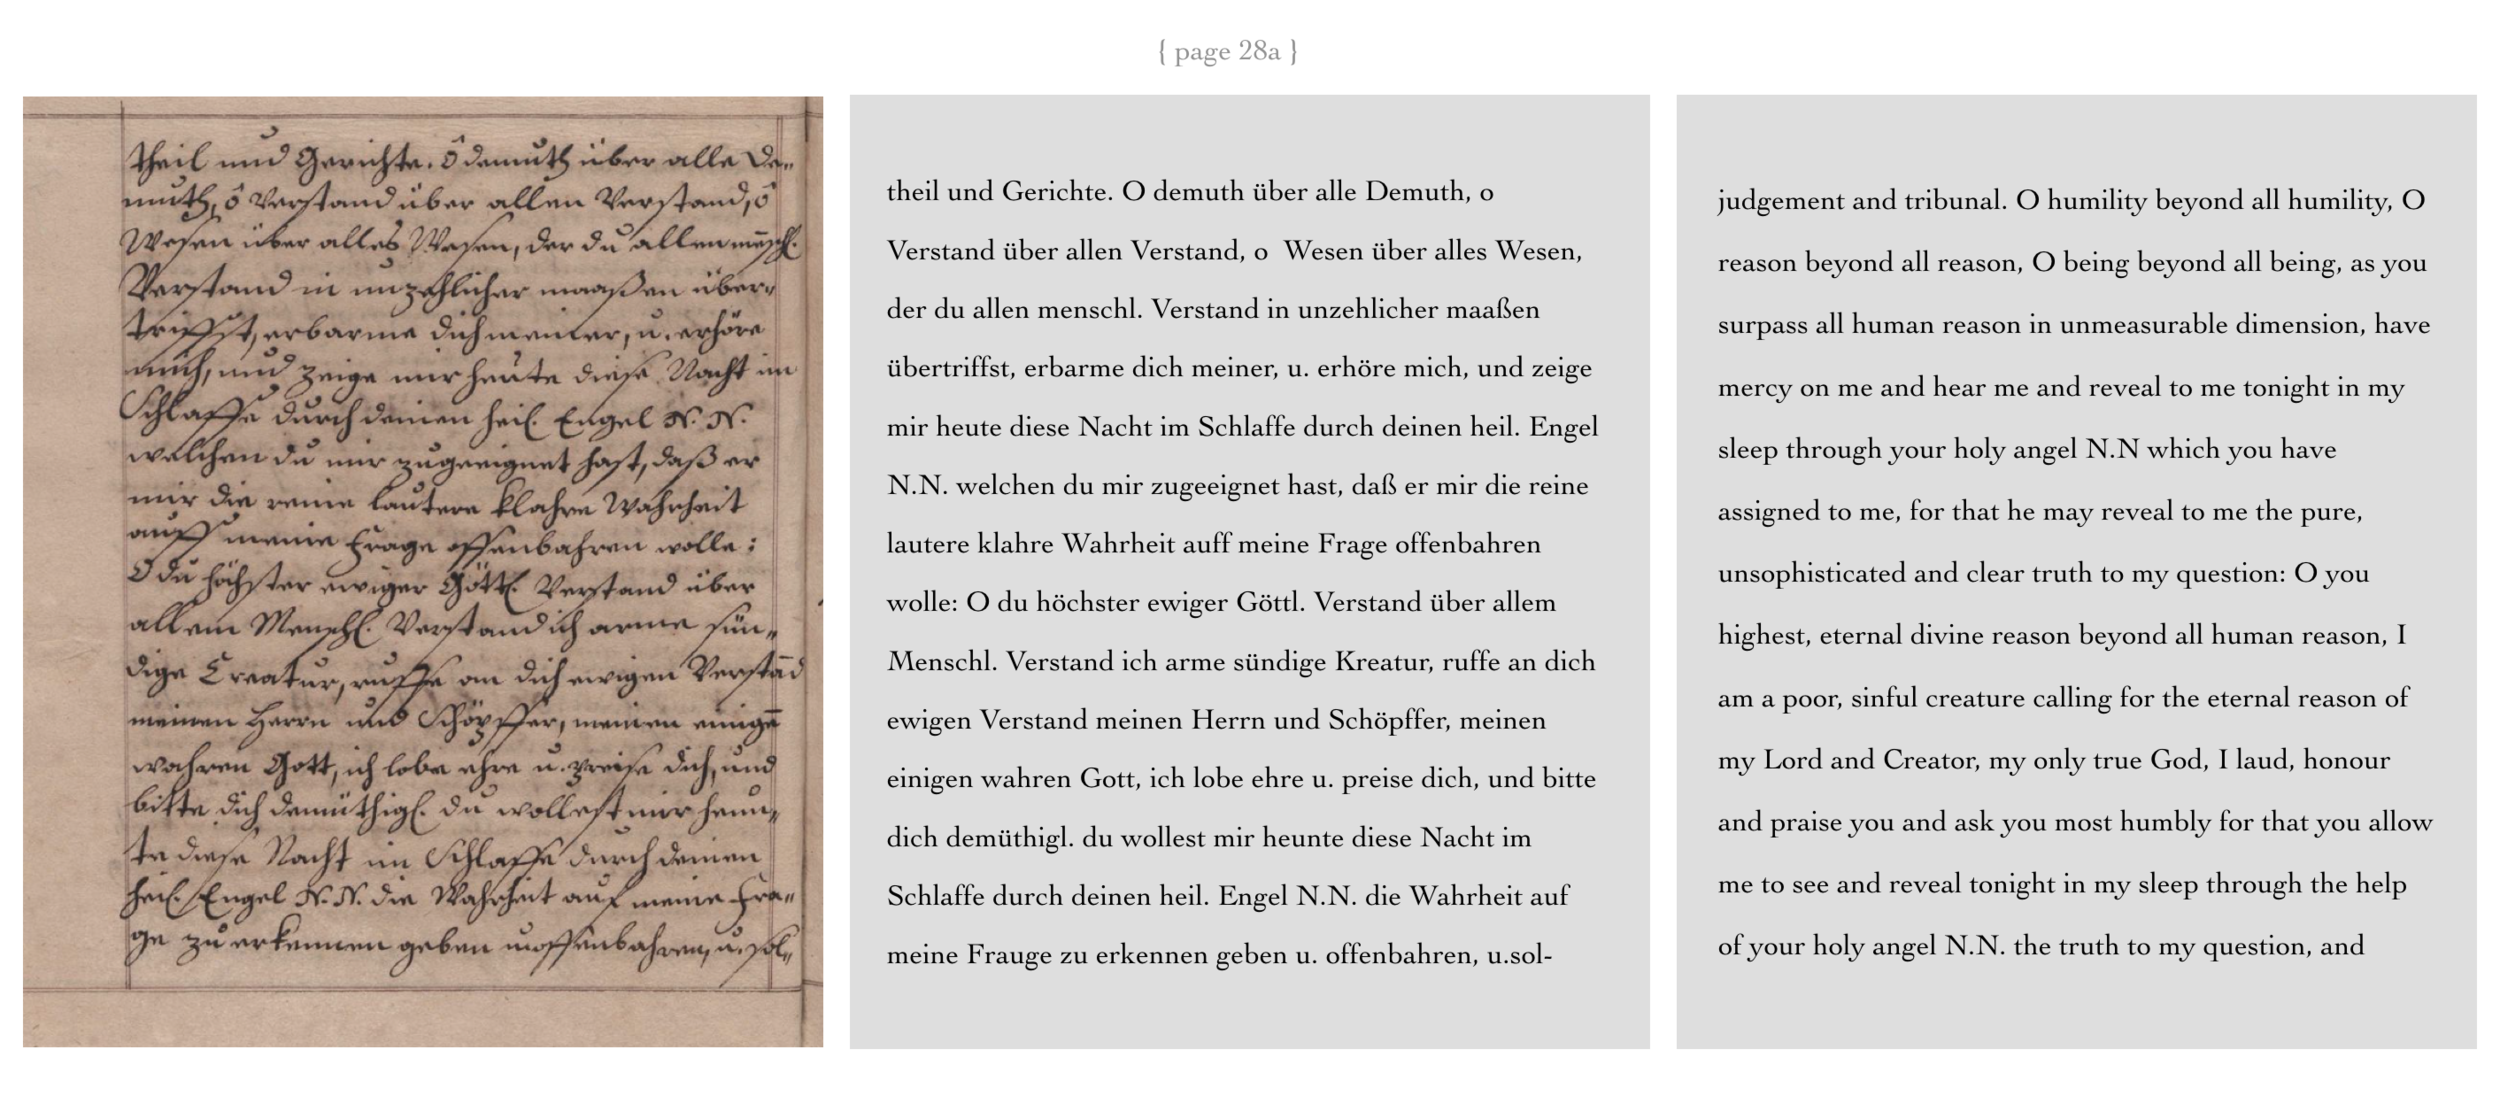 { page 28a }
theil und Gerichte. Ô demuth über alle De„
muth, ô Verstand über allen Verstand, ô
Wesen über alles Wesen, der du allen mēschl.
Verstand in unzehlicher maaßen über„
trifft, erbarme dich meiner, u. erhöre
mich, und zeige mir heute diese Nacht im
Schlaffe durch deinen heil. Engel N. N.
welchen du mir zugeeignet hast, daß er
mir die reine lautere klahre Wahrheit
auff meine Frage offenbahren wolle:
O du höchster ewiger Göttl. Verstand über
allem Menschl. Verstand ich arme sün„
dige Creatur, ruffe an dich ewigen Verstād
meinen Herrn und Schöpffer, meinen einigē
wahren Gott, ich lobe ehre u. preise dich, und
bitte dich demüthigl. du wollest mir heun„
te diese Nacht im Schlaffe durch deinen
heil. Engel N. N. die Wahrheit auf meine Fra„
ge zu erkennen geben u. offenbahren, u. sol„
theil und Gerichte. O demuth über alle Demuth, o
Verstand über allen Verstand, o  Wesen über alles Wesen,
der du allen menschl. Verstand in unzehlicher maaßen
übertriffst, erbarme dich meiner, u. erhöre mich, und zeige
mir heute diese Nacht im Schlaffe durch deinen heil. Engel
N.N. welchen du mir zugeeignet hast, daß er mir die reine
lautere klahre Wahrheit auff meine Frage offenbahren
wolle: O du höchster ewiger Göttl. Verstand über allem
Menschl. Verstand ich arme sündige Kreatur, ruffe an dich
ewigen Verstand meinen Herrn und Schöpffer, meinen
einigen wahren Gott, ich lobe ehre u. preise dich, und bitte
dich demüthigl. du wollest mir heunte diese Nacht im
Schlaffe durch deinen heil. Engel N.N. die Wahrheit auf
meine Frauge zu erkennen geben u. offenbahren, u.sol-
judgement and tribunal. O humility beyond all humility, O
reason beyond all reason, O being beyond all being, as you
surpass all human reason in unmeasurable dimension, have
mercy on me and hear me and reveal to me tonight in my
sleep through your holy angel N.N which you have
assigned to me, for that he may reveal to me the pure,
unsophisticated and clear truth to my question: O you
highest, eternal divine reason beyond all human reason, I
am a poor, sinful creature calling for the eternal reason of
my Lord and Creator, my only true God, I laud, honour
and praise you and ask you most humbly for that you allow
me to see and reveal tonight in my sleep through the help
of your holy angel N.N. the truth to my question, and